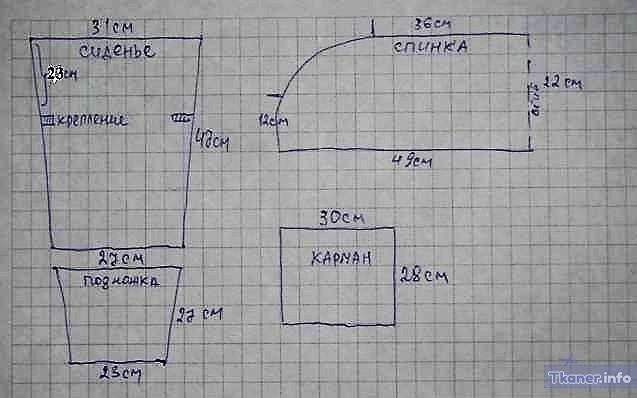 31см
сиденье
23см
крепление
47см
27см
подножка
27 см
23см
36см
спинка
22 см
сгиб
12см
49см
30см
КАРМАН
28см
Tkaner.info